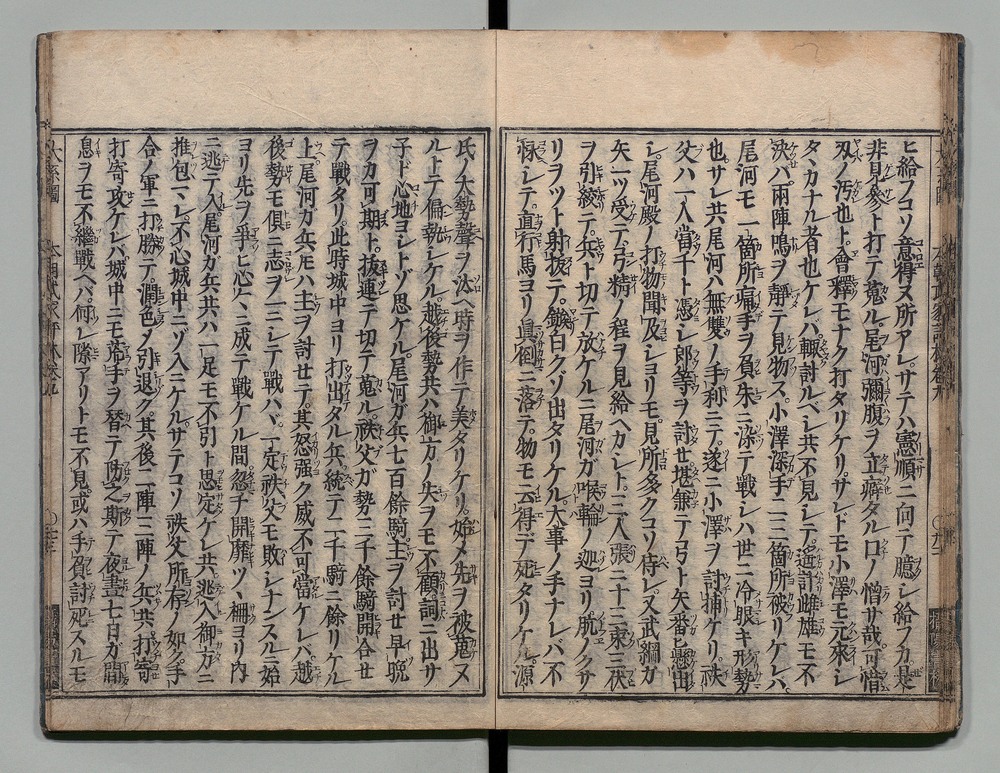 ヒ給フコソ意得ヌ所アレ。サテハ憲順ニ向テ臆シ給フカ。是
非見參ト打テ蒐ル。尾河彌腹ヲ立癖タル口ノ憎サ哉。可惜
刄ノ汚也ト。會釋モナク打タリケリ。サレドモ小澤モ元來シ
タヽカナル者也ケレハ輙討ルベシ共不見シテ。迭計雌雄モ不
决バ兩陣鳴ヲ靜テ見物ス。小澤深手二三箇所被リケレハ
尾河モ一箇所痛手ヲ負朱ニ染テ戰シハ世ニ冷眼キ形勢
也。サレ共尾河ハ無雙ノ手利ニテ。遂ニ小澤ヲ討捕ケリ。秩
父ハ一人當千ト憑シ郎等ヲ討セ堪兼テ弓ト矢番懸出
シ。尾河殿ノ打物聞及シヨリモ。見所多クコソ侍レ。又武綱カ
矢一ツ受テ弓精ノ程ヲ見給ヘカシト。三人張ニ十三束三伏
ヲ引絞テ。兵ト切テ放ケルニ尾河ガ喉輪ノ迦ヨリ肬ノクサ
リヲツト射拔テ。鏃白クゾ出タリケル。大事ノ手ナレバ不
悚シテ。直行馬ヨリ眞倒ニ落テ。物モ云得デ死タリケル。源
氏ノ大勢聲ヲ汰ヘ時ヲ作テ美タリケリ。始メ先ヲ被蒐ヌ
ルトテ偏執シケル。越後勢共ハ御方ノ失ヲモ不顧詞ニ出サ
子ド心地ヨシトゾ思ケル。尾河ガ兵七百餘騎主ヲ討セ早晩
ヲカ可期ト。拔連テ切テ蒐ル。秩父ガ勢二千餘騎開合セ
テ戰タリ。此時城中ヨリ打出タル兵統テ二千騎ニ餘リケル
上尾河ガ兵モハ主ヲ討セテ。其怒强ク威不可當ケレバ越
後勢モ倶ニ志ヲ一ニシテ戰ハヾ。一定秩父モ敗シナンスル。始
ヨリ先ヲ爭ヒ心々ニ成テ戰ケル間。忽チ開靡ツヽ柵ヨリ内
ニ逃テ入尾河ガ兵共ハ一足モ不引ト思定ケレ共。逃入御方ニ
推包マレ不心城中ニゾ入ニケル。サテコソ秩父所存ノ如ク手
合ノ軍ニ打勝ニテ。潤色ノ引退ク。其後一陣二陣ノ兵共打寄
打寄攻ケレバ城中ニモ荒手ヲ替テ防之斯テ夜晝七日ガ間
息ヲモ不繼戰ヘバ。何レ隙アリトモ不見或ハ手負討死スルモ
大系圖
本朝武家評林卷九